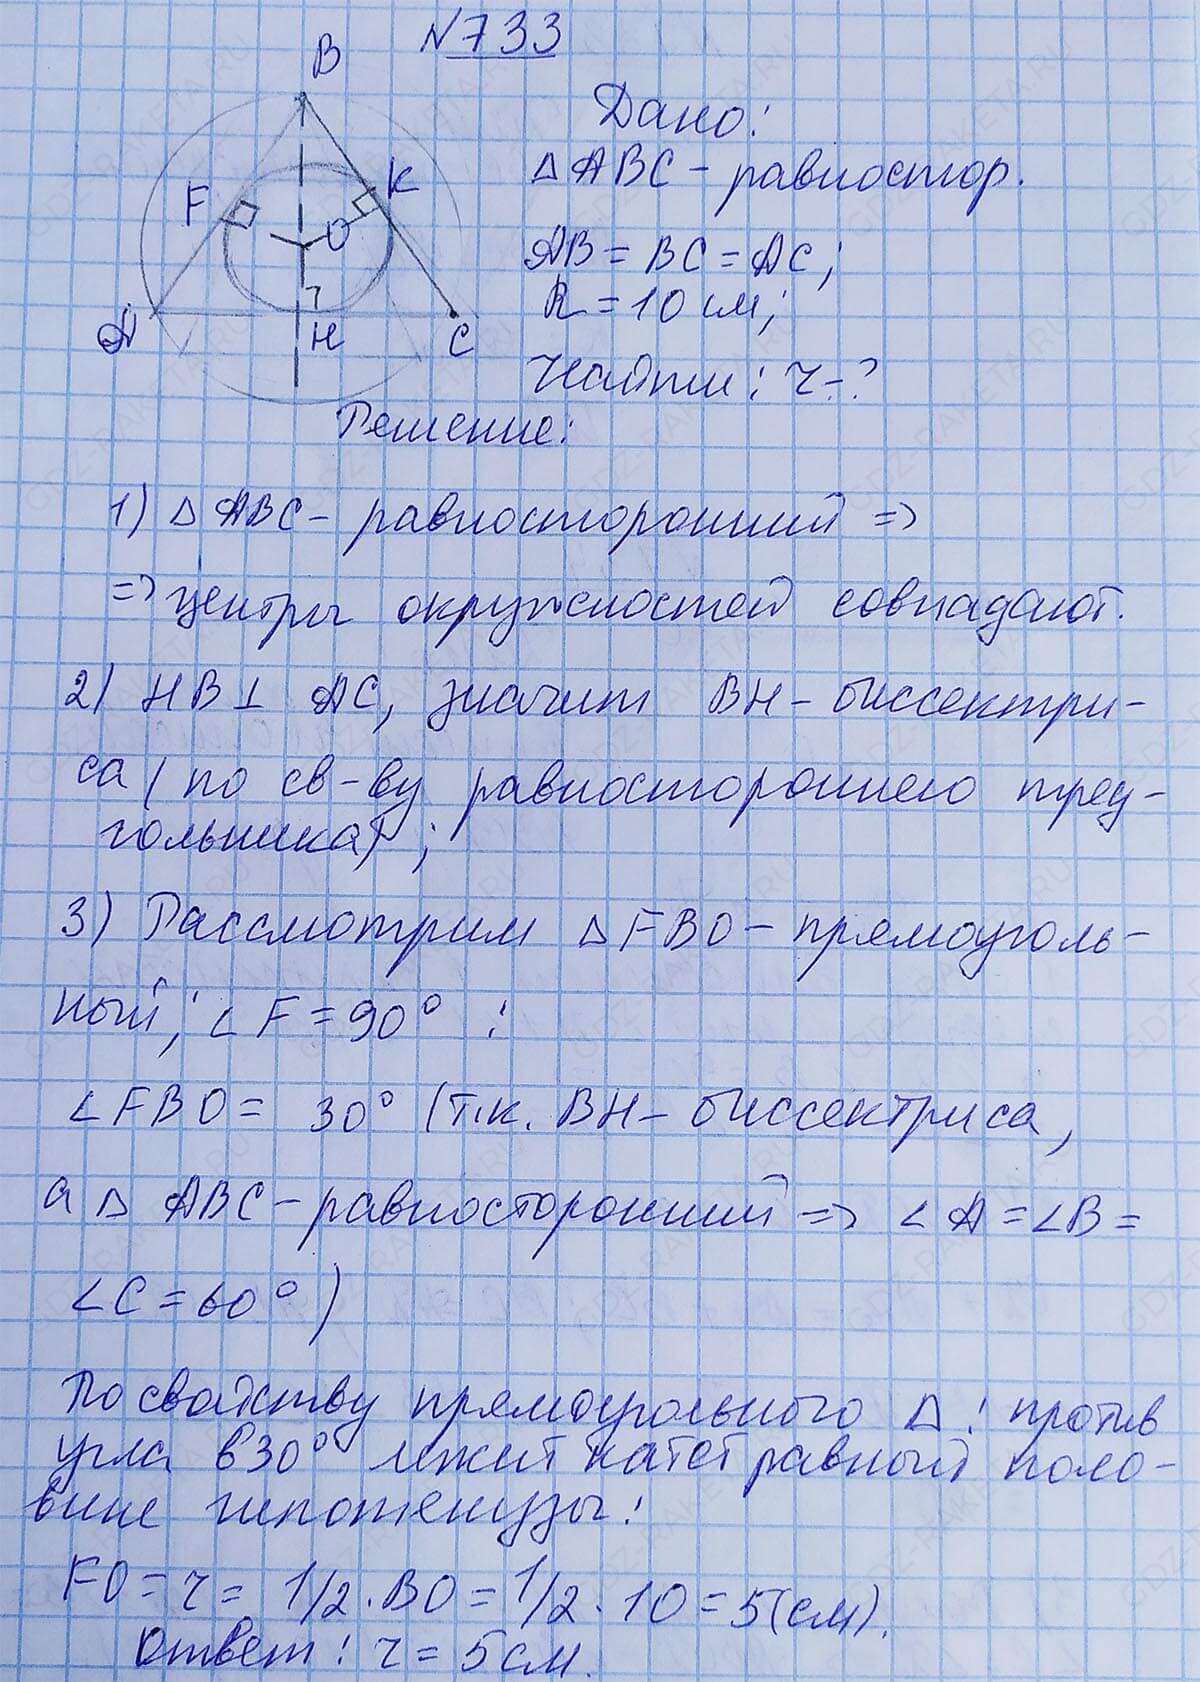 №733
B
Дано:
△ABC – равностор.
F
K
O
AB = BC = AC;
R = 10 см;
A
H
C
Найти: r - ?
Решение:
1) △ABC – равносторонний =>
=> центры окружностей совпадают.
2) HB ⊥ AC, значит BH – биссектри-
са (по св-ву равностороннего треу-
гольника);
3) Рассмотрим △FBO – прямоуголь-
ный; ∠F = 90° :
∠FBO = 30° (т.к. BH – биссектриса,
а △ ABC – равносторонний => ∠A = ∠B =
∠C = 60°)
По свойству прямоугольного △: против
угла в 30° лежит катет равный поло-
вине гипотенузы:
FO = r = 1/2 · BO = 1/2 · 10 = 5 (см).
Ответ: r = 5 см.